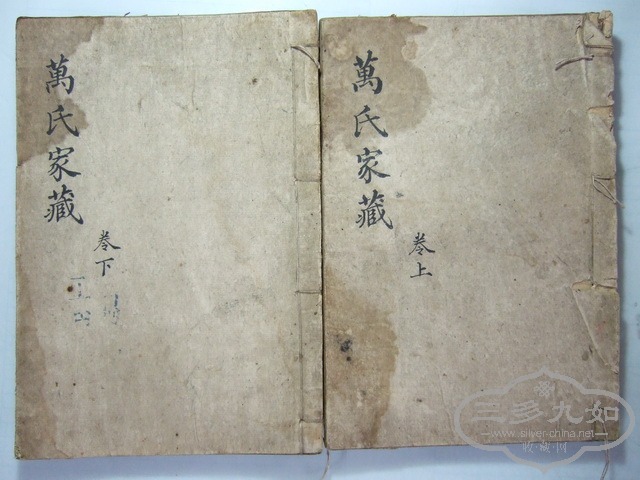 萬氏家藏
卷上
萬氏家藏
卷下
三多九如
www.silver-china.net
收·藏·网